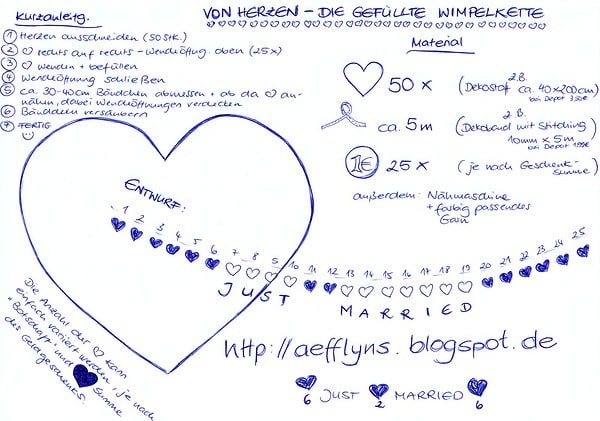 VON HERZEN - DIE GEFÜLLTE WIMPELKETTE
Kurzanleitg.
1 Herzen ausschneiden (50 Stk.)
2 ♡ rechts auf rechts - Wendeöffng. oben (25x)
3 ♡ wenden + befüllen
4 Wendeöffnung schließen
5 ca. 30-40cm Bändchen abmessen + ab da ♡ an-
nähen, dabei Wendeöffnungen verdecken
6 Bändchen versäubern
7 FERTIG
Material
50 x
(z.B. Dekostoff ca. 40x200cm)
bei Depot 3.50€
ca. 5m
(z.B. Dekoband mit Stitching)
10mm x 5m
bei Depot 1.99€
1€ 25 x
(je nach Geschenk-
summe)
außerdem: Nähmaschine
+ farbig passendes
Garn
ENTWURF:
1 2 3 4 5 6 7 8 9 10 11 12 13 14 15 16 17 18 19 20 21 22 23 24 25
JUST
MARRIED
Die Anzahl der ♡ kann
einfach variiert werden, je nach
"Botschaft" und Summe
des Geldgeschenks.
http://aefflyns.blogspot.de
♥ JUST ♥ MARRIED ♥
6 2 6